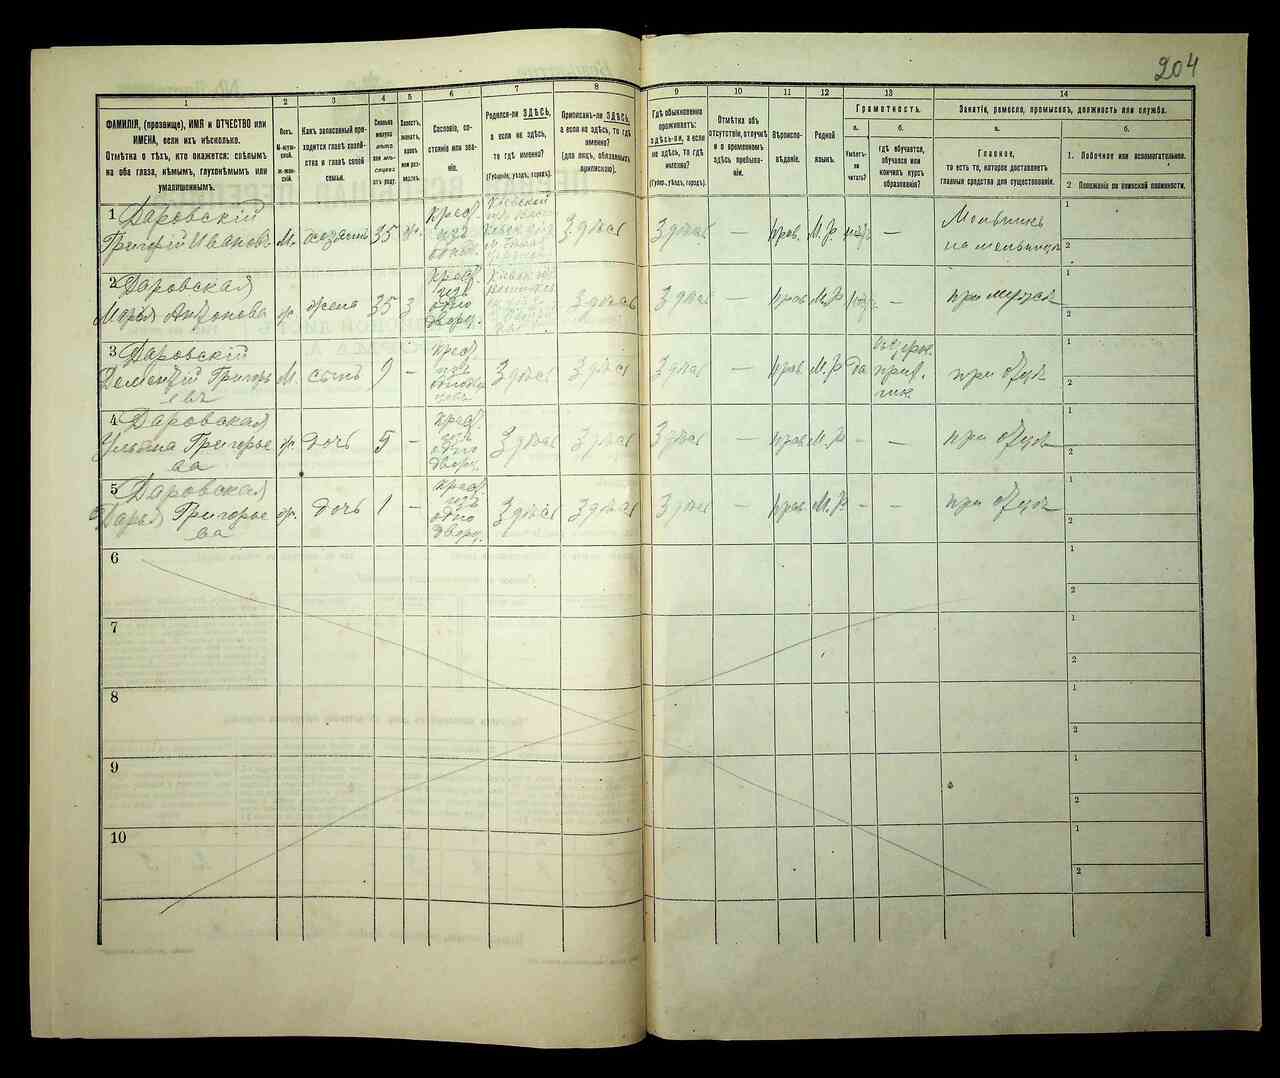 204
1
2
3
4
5
6
7
8
9
10
11
12
13
14
ФАМИЛІЯ, (прозвище), ИМЯ и ОТЧЕСТВО или
ИМЕНА, если ихъ нѣсколько.
Отмѣтка о тѣхъ, кто окажется: слѣпымъ
на оба глаза, нѣмымъ, глухонѣмымъ или
умалишеннымъ.
Полъ.
М-муж-
ской.
Ж-жен-
скій.
Какъ записанный при-
ходится главѣ хозяй-
ства и главѣ своей
семьи.
Сколько
минуло
лѣтъ
или мѣ-
сяцевъ
отъ роду.
Холостъ,
женатъ,
вдовъ
или раз-
веденъ.
Сословіе, со-
стояніе или зва-
ніе.
Родился-ли ЗДѢСЬ,
а если не здѣсь,
то гдѣ именно?
(Губернія, уѣздъ, городъ).
Приписанъ-ли ЗДѢСЬ,
а если не здѣсь, то гдѣ
именно?
(для лицъ, обязанныхъ
припискою).
Гдѣ обыкновенно
проживаетъ:
здѣсь-ли, а если
не здѣсь, то гдѣ
именно?
(Губер., уѣздъ, городъ).
Отмѣтка объ
отсутствіи, отлучкѣ
и о временномъ
здѣсь пребыва-
ніи.
Вѣроиспо-
вѣданіе.
Родной
языкъ.
Грамотность.
а.
б.
Умѣетъ-
ли
читать?
Гдѣ обучается,
обучался или
кончилъ курсъ
образованія?
Занятіе, ремесло, промыселъ, должность или служба.
а.
б.
Главное,
то есть то, которое доставляетъ
главныя средства для существованія.
1. Побочное или вспомогательное.
2 Положеніе по воинской повинности.
1 Даровскій
Григорій Ивановъ
М.
хозяинъ
35
ж.
Крест.
изъ
однод.
Здѣсь
Здѣсь
—
прав.
М.Р.
—
Мельникъ
на мельницѣ
1
2
2 Даровская
Марья Антонова
ж.
жена
35
З
Крест.
изъ
одно
двор.
Здѣсь
Здѣсь
—
прав
М.Р.
—
при мужѣ
1
2
3 Даровскій
Дементій Григорь
евъ
М.
сынъ
9
—
Крест.
изъ
Здѣсь
Здѣсь
Здѣсь
—
прав
М.Р
да
при отцѣ
1
2
4 Даровская
Ульяна Григорье
ва
ж.
дочь
5
—
Крест.
изъ
одно
двор.
Здѣсь
Здѣсь
Здѣсь
—
прав
М.Р
—
—
при отцѣ
1
2
5 Даровская
Дарья Григорье
ва
ж.
дочь
1
—
Крест.
изъ
одно
двор.
Здѣсь
Здѣсь
Здѣсь
—
прав.
М.Р
—
—
при отцѣ
1
2
6
1
2
7
1
2
8
1
2
9
1
2
10
1
2